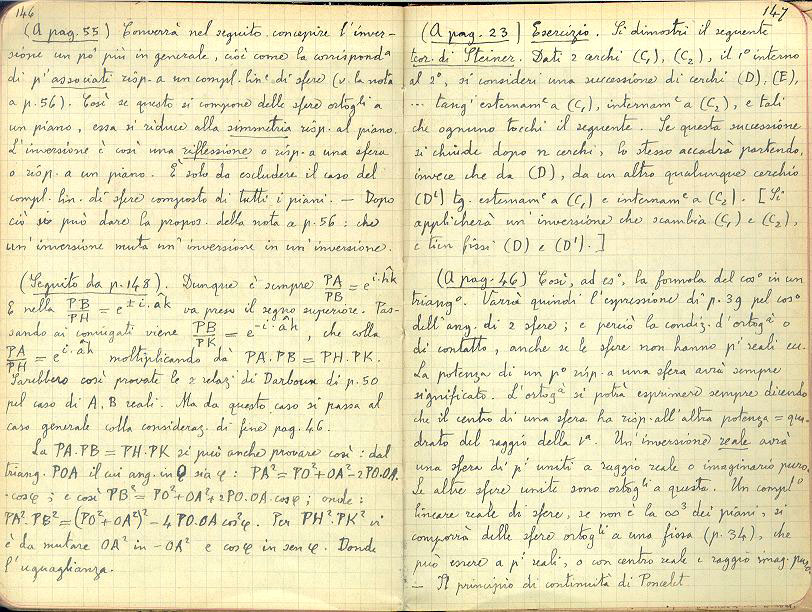 146
(A pag. 55) Converrà nel seguito concepire l'inver-
sione un po' più in generale, cioè come la corrispondᵃ
di pⁱ associati risp. a un compl. linᵉ di sfere (v. la nota
a p. 56). Così se questo si compone delle sfere ortogˡⁱ a
un piano, essa si riduce alla simmetria risp. al piano.
L'inversione è così una riflessione o risp. a una sfera
o risp. a un piano. È solo da escludere il caso del
compl. lin. di sfere composto di tutti i piani. — Dopo
ciò si può dare la propos. della nota a p. 56: che
un'inversione muta un'inversione in un'inversione.
(Seguito da p. 148). Dunque è sempre PA/PB = e^{i.ĥk}
E nella PB/PH = e^{±i.âk} va preso il segno superiore. Pas-
sando ai coniugati viene PB/PK = e^{-i.âk}, che colla
PA/PH = e^{i.âh} moltiplicando dà PA.PB = PH.PK.
Sarebbero così provate le 2 relaz. di Darboux di p. 50
pel caso di A, B reali. Ma da questo caso si passa al
caso generale colla consideraz. di fine pag. 46.
La PA.PB = PH.PK si può anche provare così: dal
triang. POA il cui ang. in O sia φ: PA² = PO² + OA² - 2PO.OA.
.cosφ; e così PB² = PO² + OA² + 2PO.OA.cosφ; onde:
PA².PB² = (PO² + OA²)² - 4PO.OA cos²φ. Per PH².PK² vi
è da mutare OA² in -OA² e cosφ in senφ. Donde
l'uguaglianza.
147
(A pag. 23) Esercizio. Si dimostri il seguente
teor. di Steiner. Dati 2 cerchi (C₁), (C₂), il 1º interno
al 2º, si consideri una successione di cerchi (D), (E),
... tangⁱ esternamᵉ a (C₁), internamᵉ a (C₂), e tali
che ognuno tocchi il seguente. Se questa successione
si chiude dopo n cerchi, lo stesso accadrà partendo,
invece che da (D), da un altro qualunque cerchio
(D') tg. esternamᵉ a (C₁) e internamᵉ a (C₂). [Si
applicherà un'inversione che scambia (C₁) e (C₂),
e tien fissi (D) e (D').]
(A pag. 46) Così, ad esº, la formola del cosº in un
triangº. Varrà quindi l'espressione di p. 39 pel cosº
dell'ang. di 2 sfere; e perciò la condiz. d'ortogᵃ o
di contatto, anche se le sfere non hanno pⁱ reali ecc.
La potenza di un pº risp. a una sfera avrà sempre
significato. L'ortogᵃ si potrà esprimere sempre dicendo
che il centro di una sfera ha risp. all'altra potenza = qua-
drato del raggio della 1ᵃ. Un'inversione reale avrà
una sfera di pⁱ uniti a raggio reale o imaginario puro.
Le altre sfere unite sono ortogˡⁱ a questa. Un complº
lineare reale di sfere, se non è la ∞³ dei piani, si
comporrà delle sfere ortogˡⁱ a una fissa (p. 34), che
può essere a pⁱ reali, o con centro reale e raggio imag. puro.
— Il principio di continuità di Poncelet